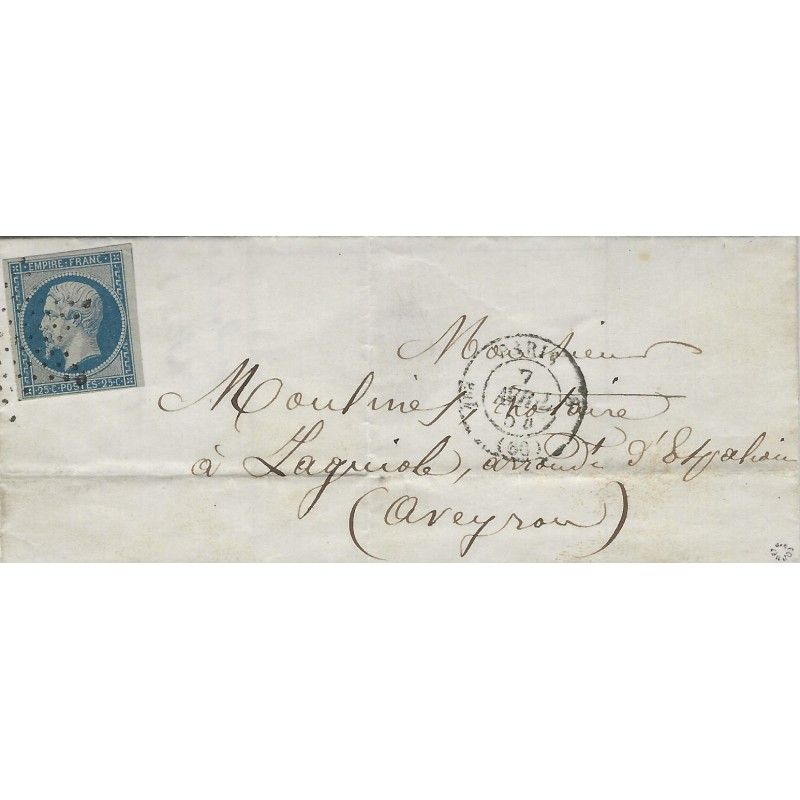 EMPIRE · FRANC ·
25·C·POSTES·25·C·
PARIS
7
AVRIL
54
(60)
Monsieur
Moulines, notaire
à Laguiole, arrondt d'Espalion
(Aveyron)